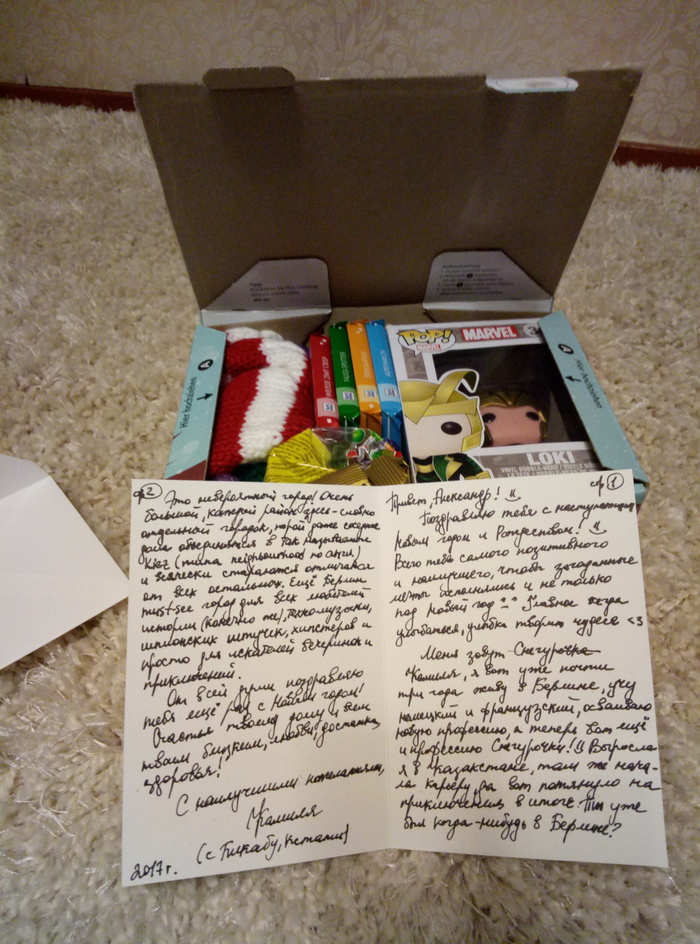 Hier hochziehen
A
POP!
MARVEL
A
Hier hochziehen
LOKI
стр 1
Привет, Александр! !!
Поздравляю тебя с наступающим
Новым годом и Рождеством! !!
Всего тебе самого позитивного
и наилучшего, чтобы загаданные
мечты исполнялись и не только
под Новый год ^^ Главное всегда
улыбаться, улыбка творит чудеса <3
Меня зовут Снегурочка
Камиля, я вот уже почти
три года живу в Берлине, учу
немецкий и французский, осваиваю
новую профессию, а теперь вот ещё
и профессию Снегурочки! !! Выросла
я в Казахстане, там же нача-
ла карьеру, да вот потянуло на
приключения в итоге. Ты уже
был когда-нибудь в Берлине?
стр 2
Это невероятный город! Очень
большой, каждый район здесь - словно
отдельный городок, порой даже соседние
дома объединяются в так называемые
Kiez (типа neighbourhood по англ)
и всячески стараются отличаться
от всех остальных. Ещё Берлин
must-see город для всех любителей
истории (конечно же), техно музыки,
шпионских штучек, хипстеров и
просто для искателей вечеринок и
приключений.
От всей души поздравляю
тебя ещё раз с Новым годом!
Счастья твоему дому и всем
твоим близким, любви, достатка,
здоровья!
С наилучшими пожеланиями,
Камиля
(с Пикабу, кстати)
2017 г.